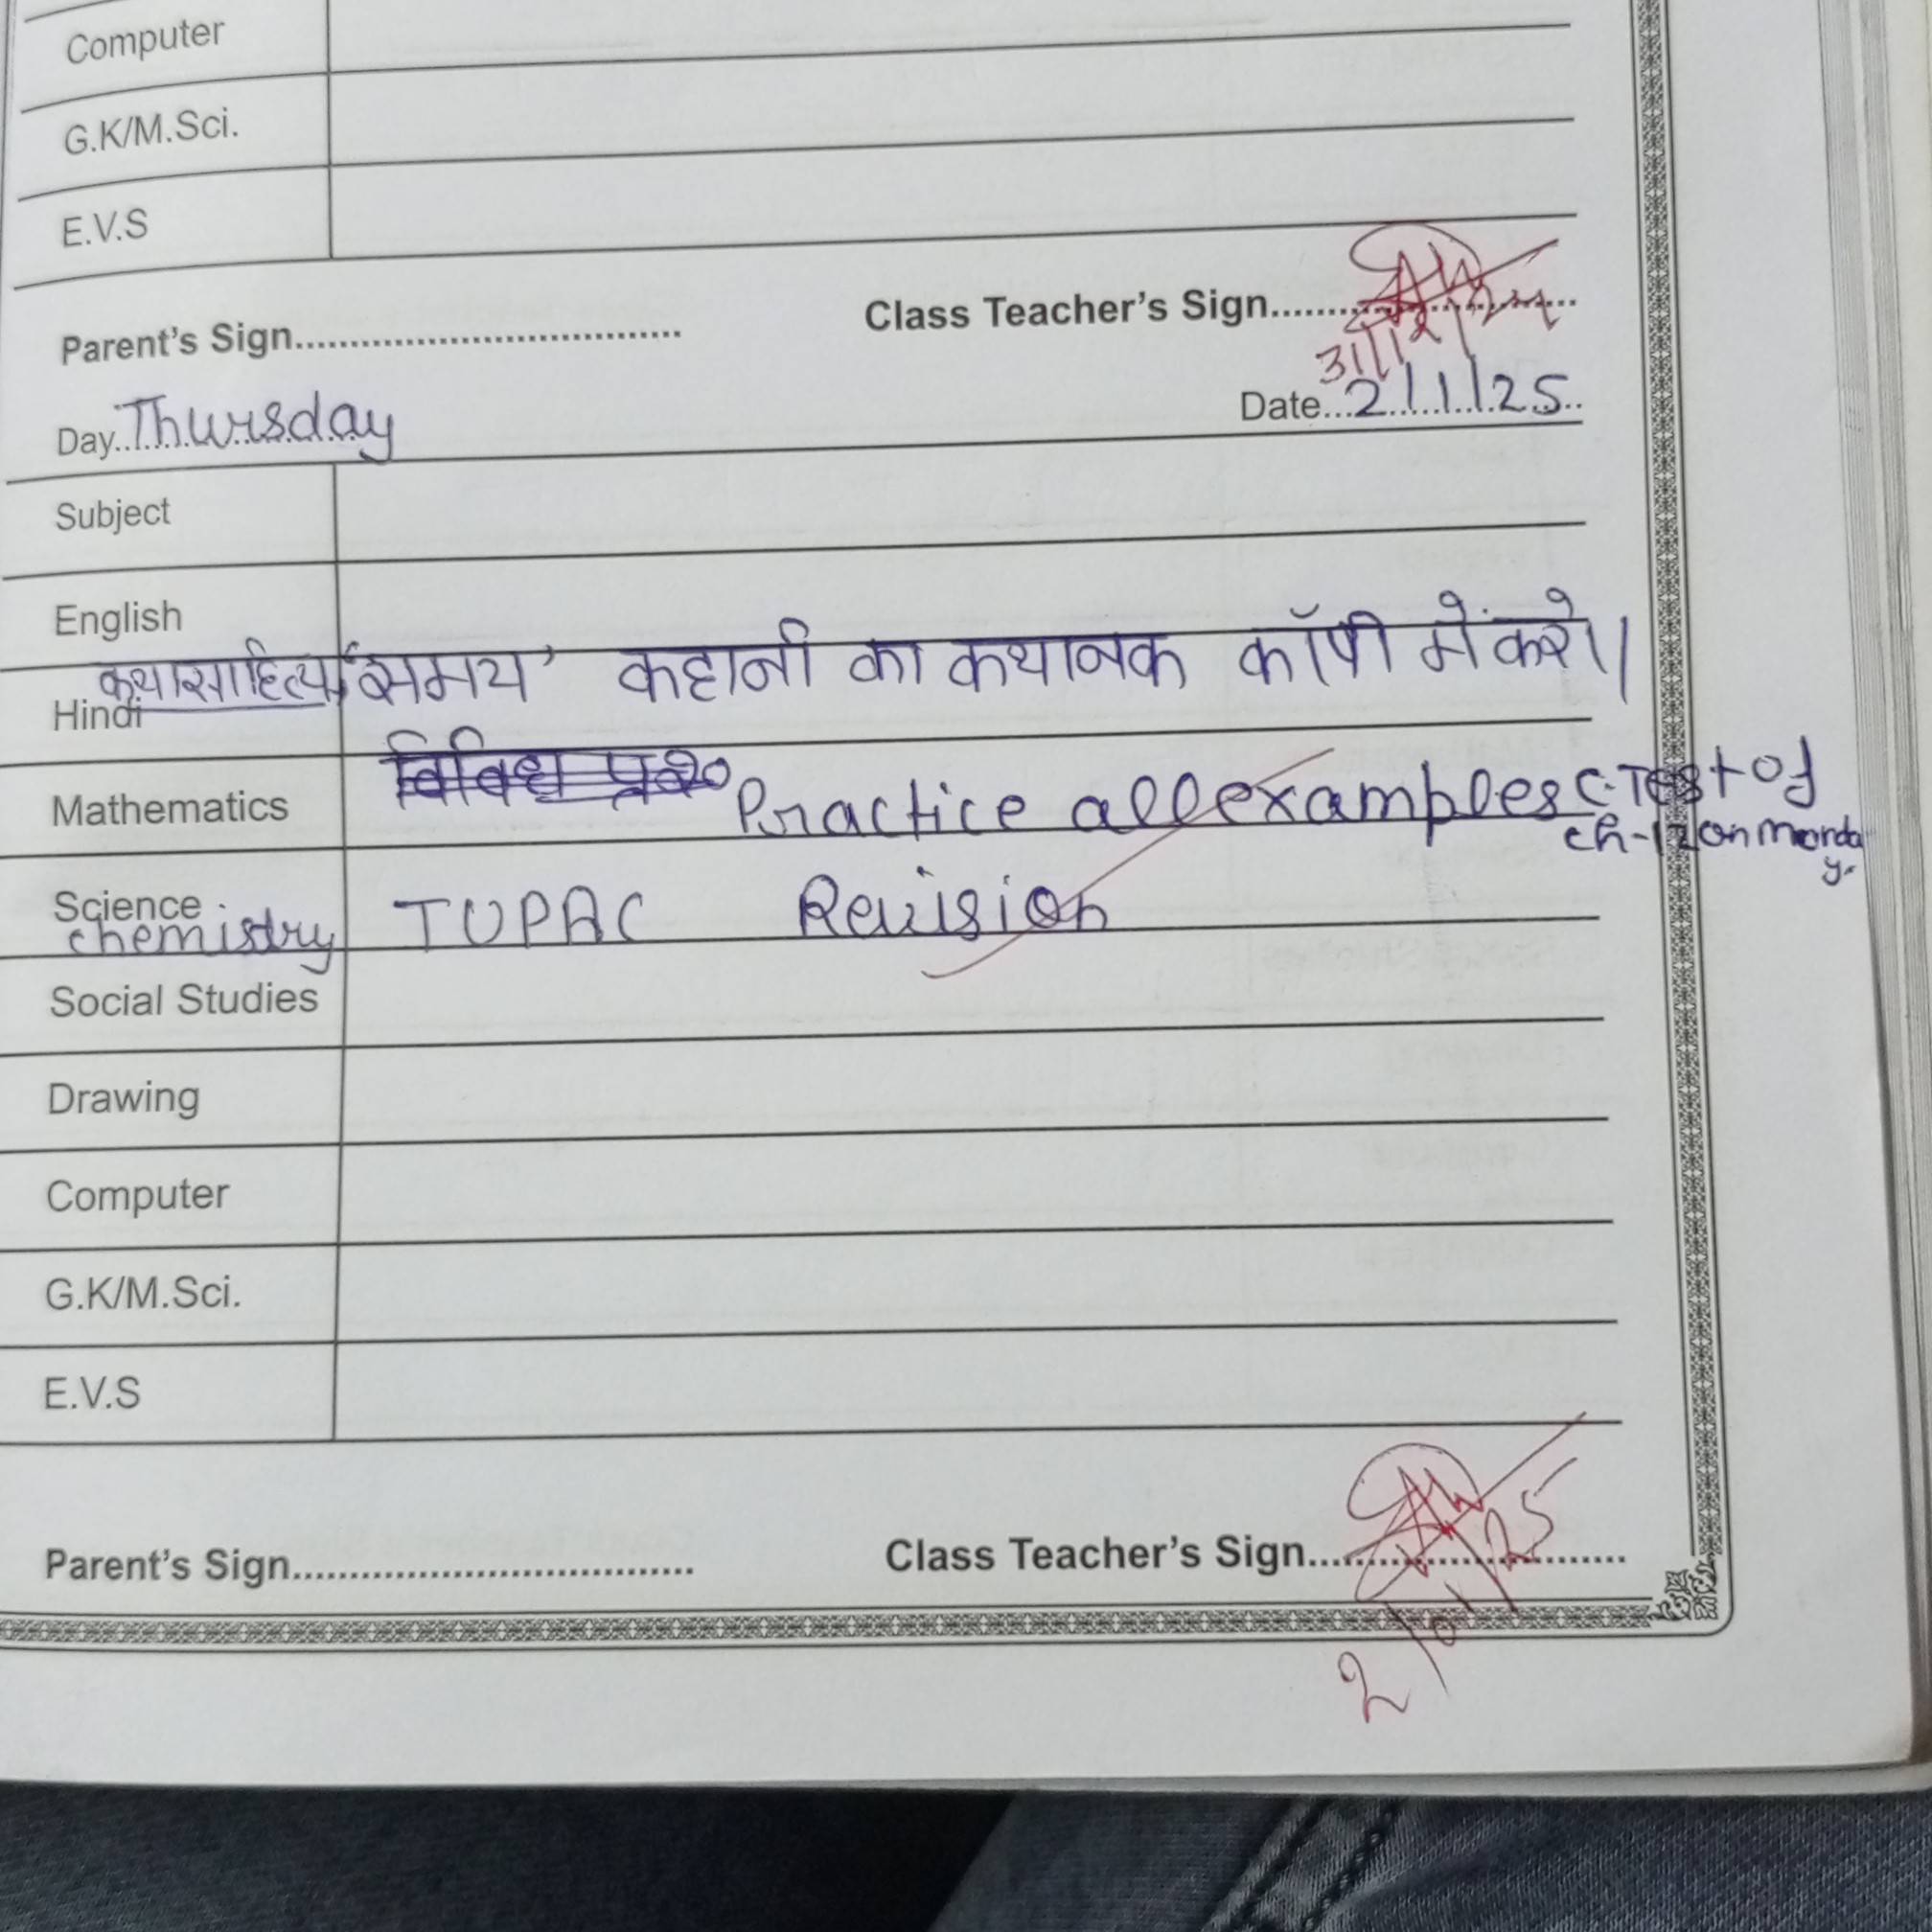 Computer
G.K/M.Sci.
E.V.S
Parent's Sign.................................. Class Teacher's Sign..............................
31/12/24
Day..Thursday Date...2/1/25..
Subject
English
Hindi कथासाहित्य, 'समय' कहानी का कथानक कॉपी में करो।
विविध प्र०
Mathematics Practice all examples C.Test of
ch-12 on Monda
y.
Science IUPAC Revision
chemistry
Social Studies
Drawing
Computer
G.K/M.Sci.
E.V.S
Parent's Sign.................................. Class Teacher's Sign..............................
2/01/25